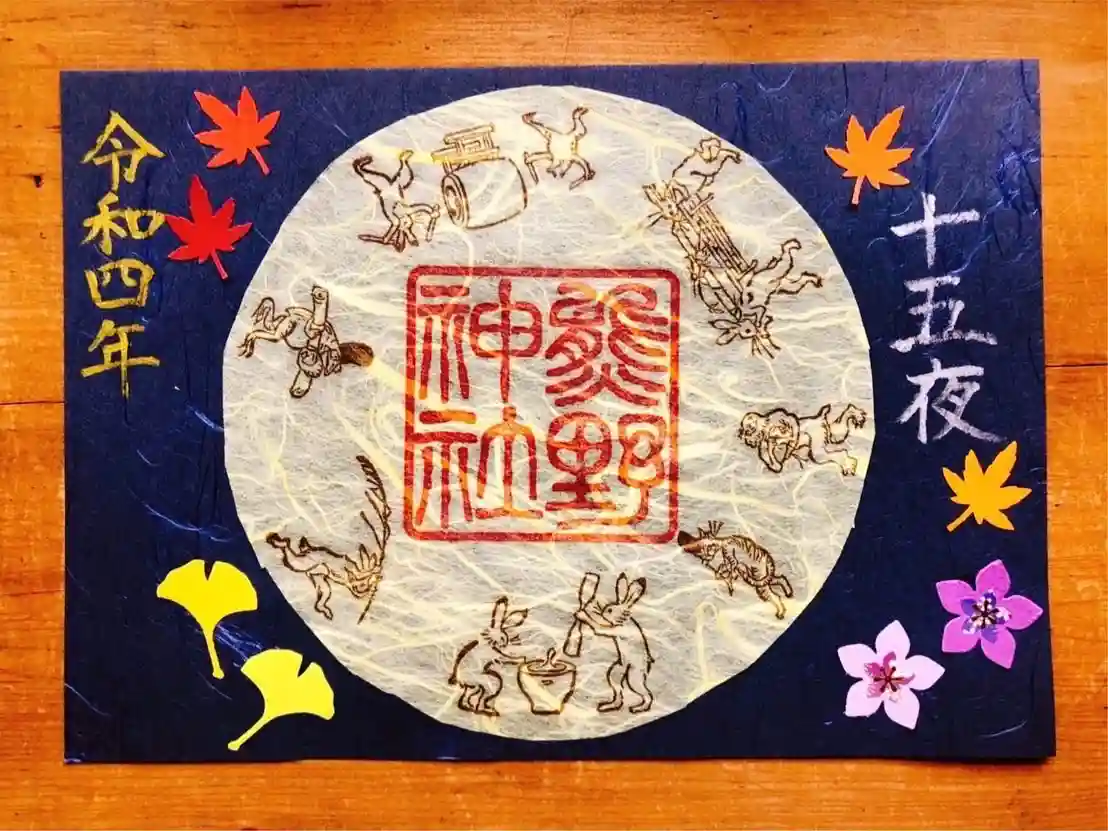 十五夜
熊野
神社
令和四年